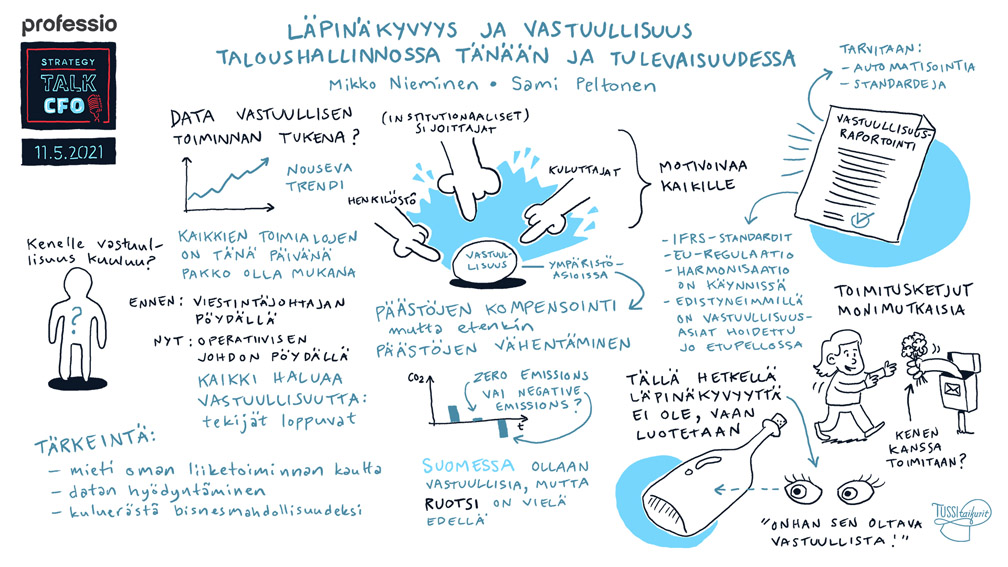 professio
STRATEGY
TALK
CFO
11.5.2021
LÄPINÄKYVYYS JA VASTUULLISUUS
TALOUSHALLINNOSSA TÄNÄÄN JA TULEVAISUUDESSA
Mikko Nieminen • Sami Peltonen
DATA VASTUULLISEN
TOIMINNAN TUKENA?
NOUSEVA
TRENDI
KAIKKIEN TOIMIALOJEN
ON TÄNÄ PÄIVÄNÄ
PAKKO OLLA MUKANA
Kenelle vastuul-
lisuus kuuluu?
?
ENNEN: VIESTINTÄJOHTAJAN
PÖYDÄLLÄ
NYT: OPERATIIVISEN
JOHDON PÖYDÄLLÄ
KAIKKI HALUAA
VASTUULLISUUTTA:
tekijät loppuvat
TÄRKEINTÄ:
- mieti oman liiketoiminnan kautta
- datan hyödyntäminen
- kuluerästä bisnesmahdollisuudeksi
(INSTITUTIONAALISET)
SIJOITTAJAT
HENKILÖSTÖ
KULUTTAJAT
VASTUUL-
LISUUS
MOTIVOIVAA
KAIKILLE
YMPÄRISTÖ-
ASIOISSA
PÄÄSTÖJEN KOMPENSOINTI
mutta etenkin
PÄÄSTÖJEN VÄHENTÄMINEN
CO2
ZERO EMISSIONS
VAI NEGATIVE
EMISSIONS?
t
SUOMESSA OLLAAN
VASTUULLISIA, MUTTA
RUOTSI ON VIELÄ
EDELLÄ
TARVITAAN:
- AUTOMATISOINTIA
- STANDARDEJA
VASTUULLISUUS-
RAPORTOINTI
- IFRS-STANDARDIT
- EU-REGULAATIO
- HARMONISAATIO
ON KÄYNNISSÄ
- EDISTYNEIMMILLÄ
ON VASTUULLISUUS-
ASIAT HOIDETTU
JO ETUPELLOSSA
TOIMITUSKETJUT
MONIMUTKAISIA
KENEN
KANSSA
TOIMITAAN?
TÄLLÄ HETKELLÄ
LÄPINÄKYVYYTTÄ
EI OLE, VAAN
LUOTETAAN
"ONHAN SEN OLTAVA
VASTUULLISTA!"
TUSSItaikurit